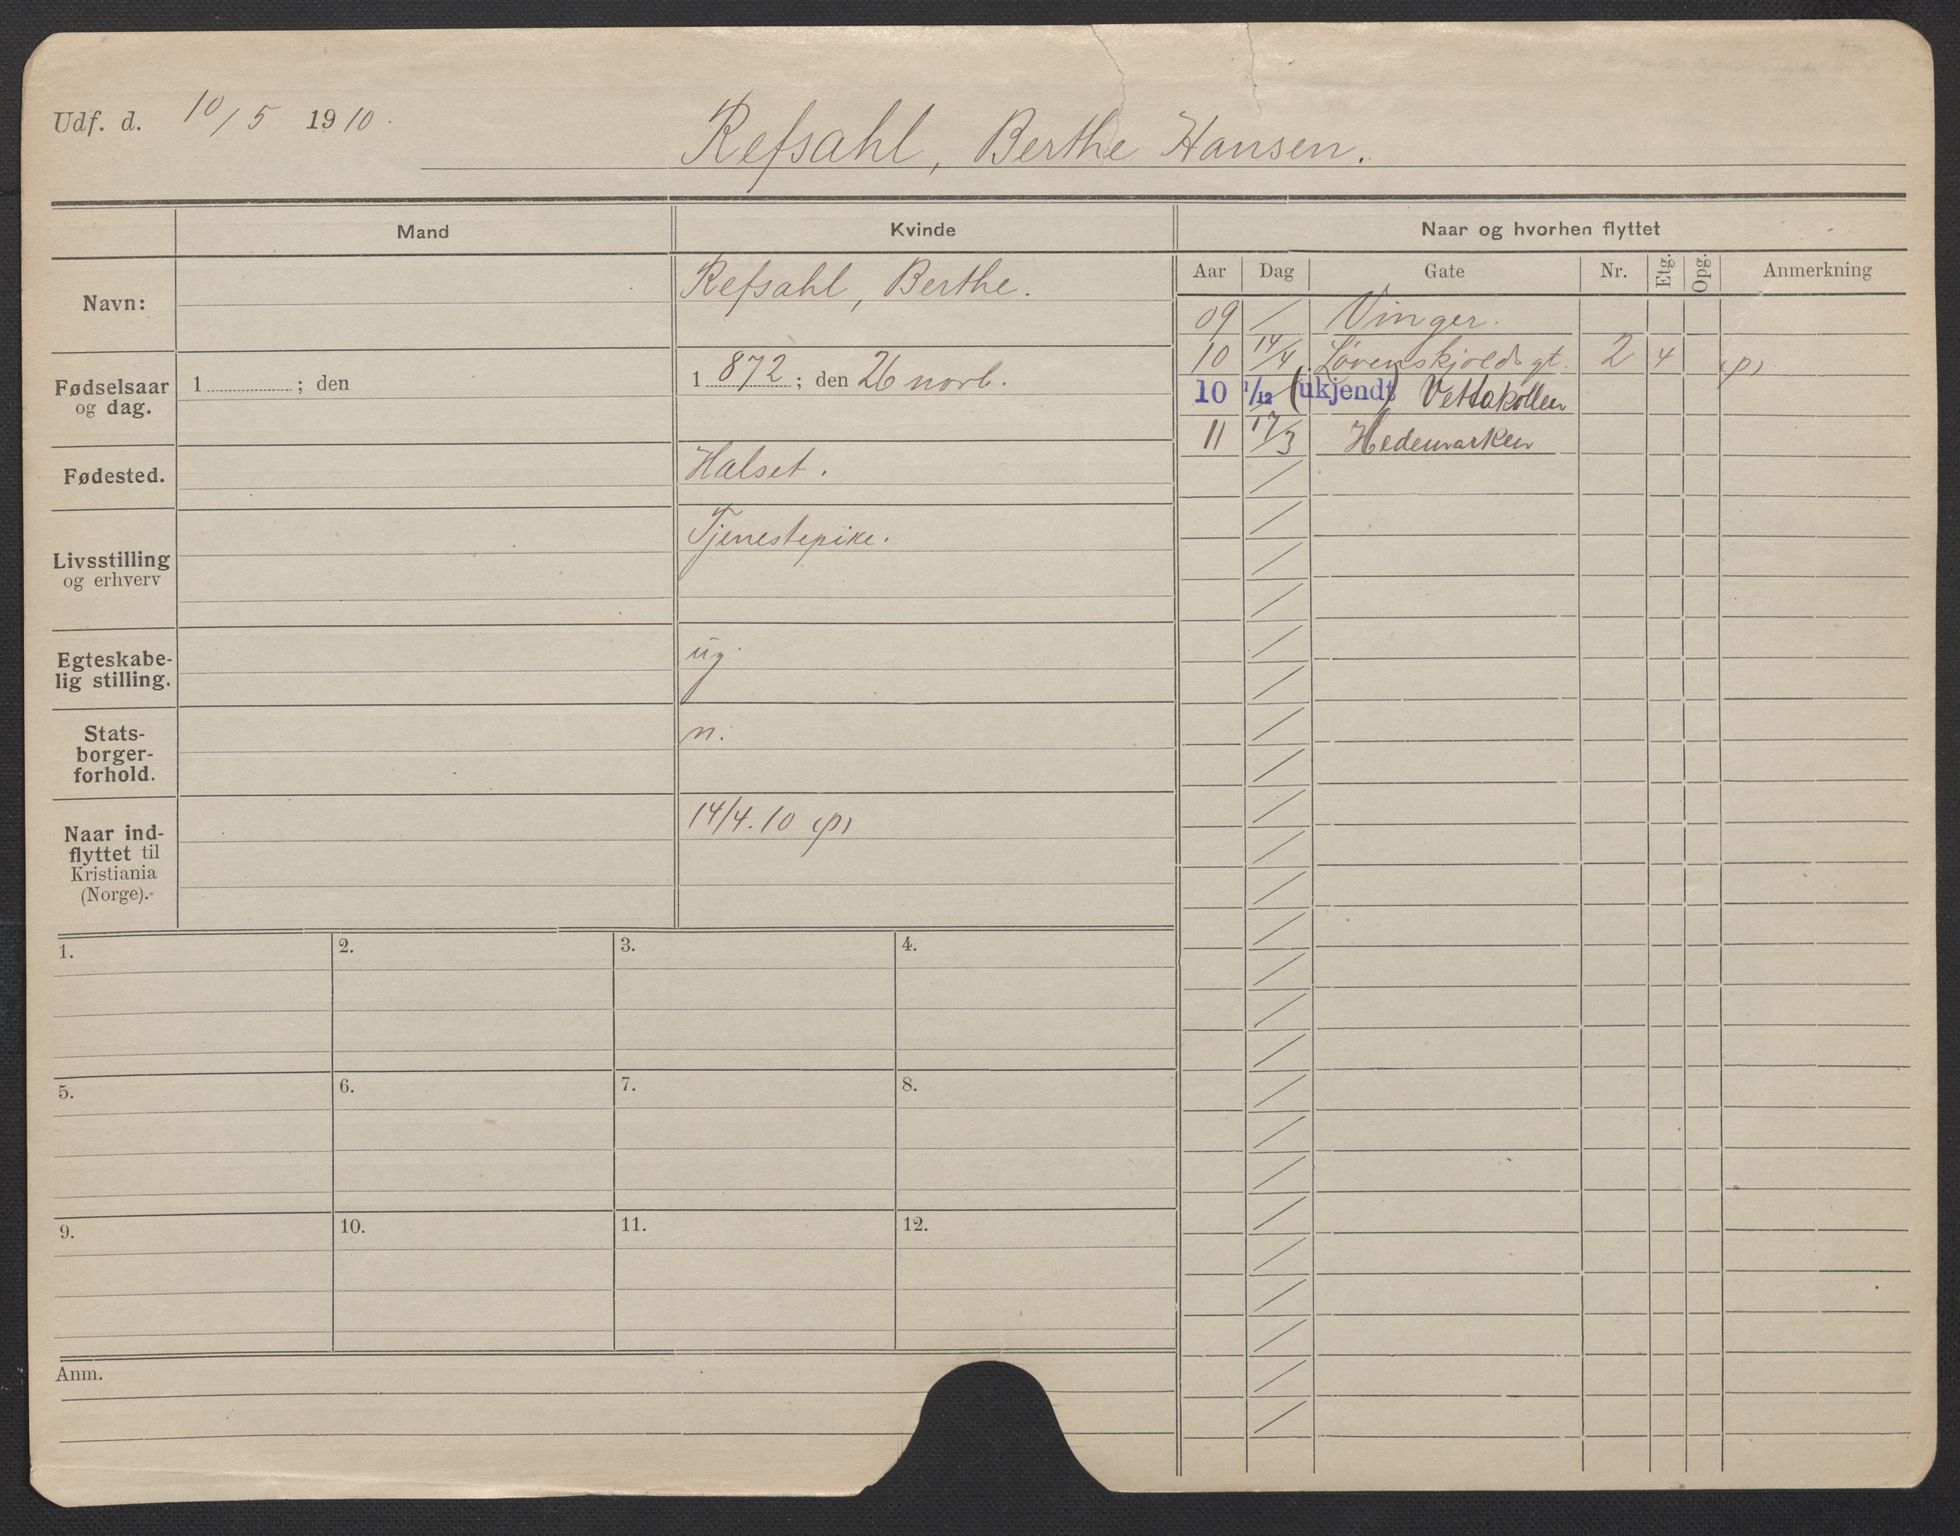 Udf. d. 10/5 1910.
Refsahl, Berthe Hansen.
Mand
Kvinde
Naar og hvorhen flyttet
Aar Dag Gate Nr. Etg. Opg. Anmerkning
Navn:
Refsahl, Berthe.
Fødselsaar og dag.
1 ; den
1872; den 26 novb.
Fødested.
Halset.
Livsstilling og erhverv
Tjenestepike.
Egteskabe-
lig stilling.
ug
Stats-
borger-
forhold.
n.
Naar ind-
flyttet til
Kristiania
(Norge).
14/4.10 (p)
09 / Vinger.
10 14/4 Løvenskjolds gt. 2 4 (p)
10 1/12 (ukjendt) Vettakollen
11 17/3 Hedemarken
1. 2. 3. 4.
5. 6. 7. 8.
9. 10. 11. 12.
Anm.